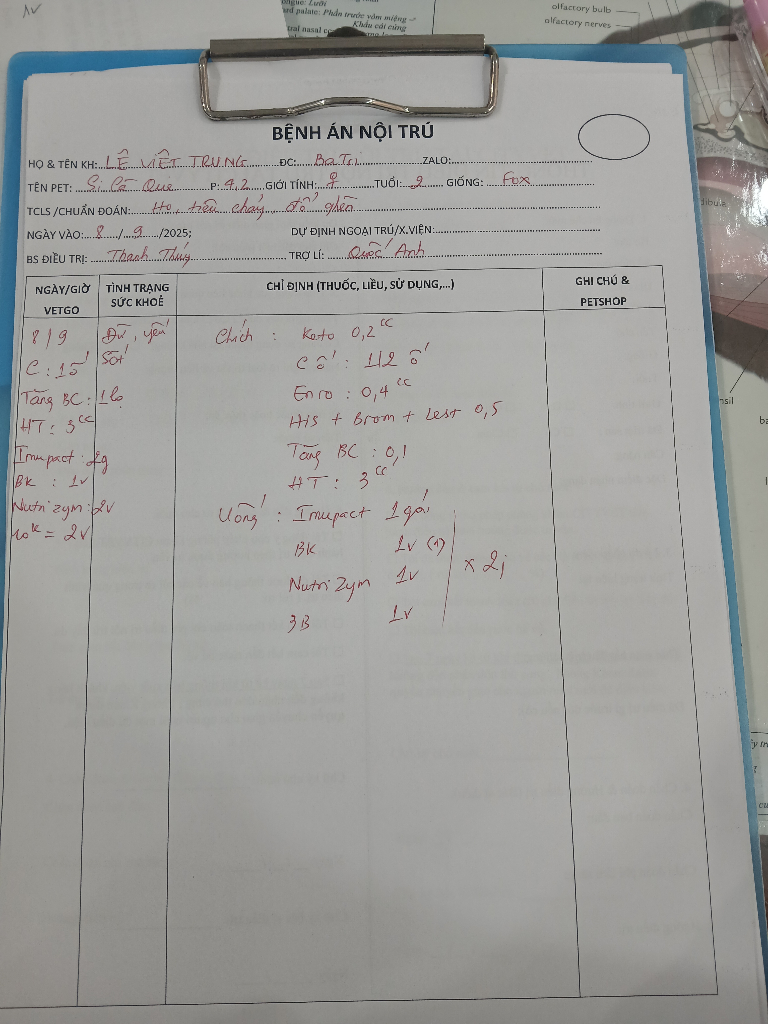 olfactory bulb
olfactory nerves
ard palate: Phần trước vòm miệng
Khẩu cái cứng
BỆNH ÁN NỘI TRÚ
HỌ & TÊN KH: LÊ VIẾT TRUNG ĐC: Ba Tri ZALO:
TÊN PET: Si Cà Que P: 4,2 GIỚI TÍNH: ♀ TUỔI: 2 GIỐNG: Fox
TCLS /CHUẨN ĐOÁN: Ho, tiêu chảy, đổ ghèn
NGÀY VÀO: 8 / 9 /2025; DỰ ĐỊNH NGOẠI TRÚ/X.VIỆN:
BS ĐIỀU TRỊ: Thanh Thúy TRỢ LÍ: Quốc Anh
NGÀY/GIỜ VETGO
TÌNH TRẠNG SỨC KHOẺ
CHỈ ĐỊNH (THUỐC, LIỀU, SỬ DỤNG,...)
GHI CHÚ & PETSHOP
8/9
C: 1 ố
Tăng BC: 1 lọ
HT: 3cc
Imupact: 2g
BK: 1v
Nutrizym: 2v
= 2v
Đừ, yếu
Sốt
Chích: Keto 0,2cc
C ố: 1/2 ố
Enro: 0,4cc
His + Brom + Lest 0,5
Tăng BC: 0,1
HT: 3cc
Uống: Imupact 1 gói
BK 1v (1)
Nutrizym 1v
3B 1v
x 2j